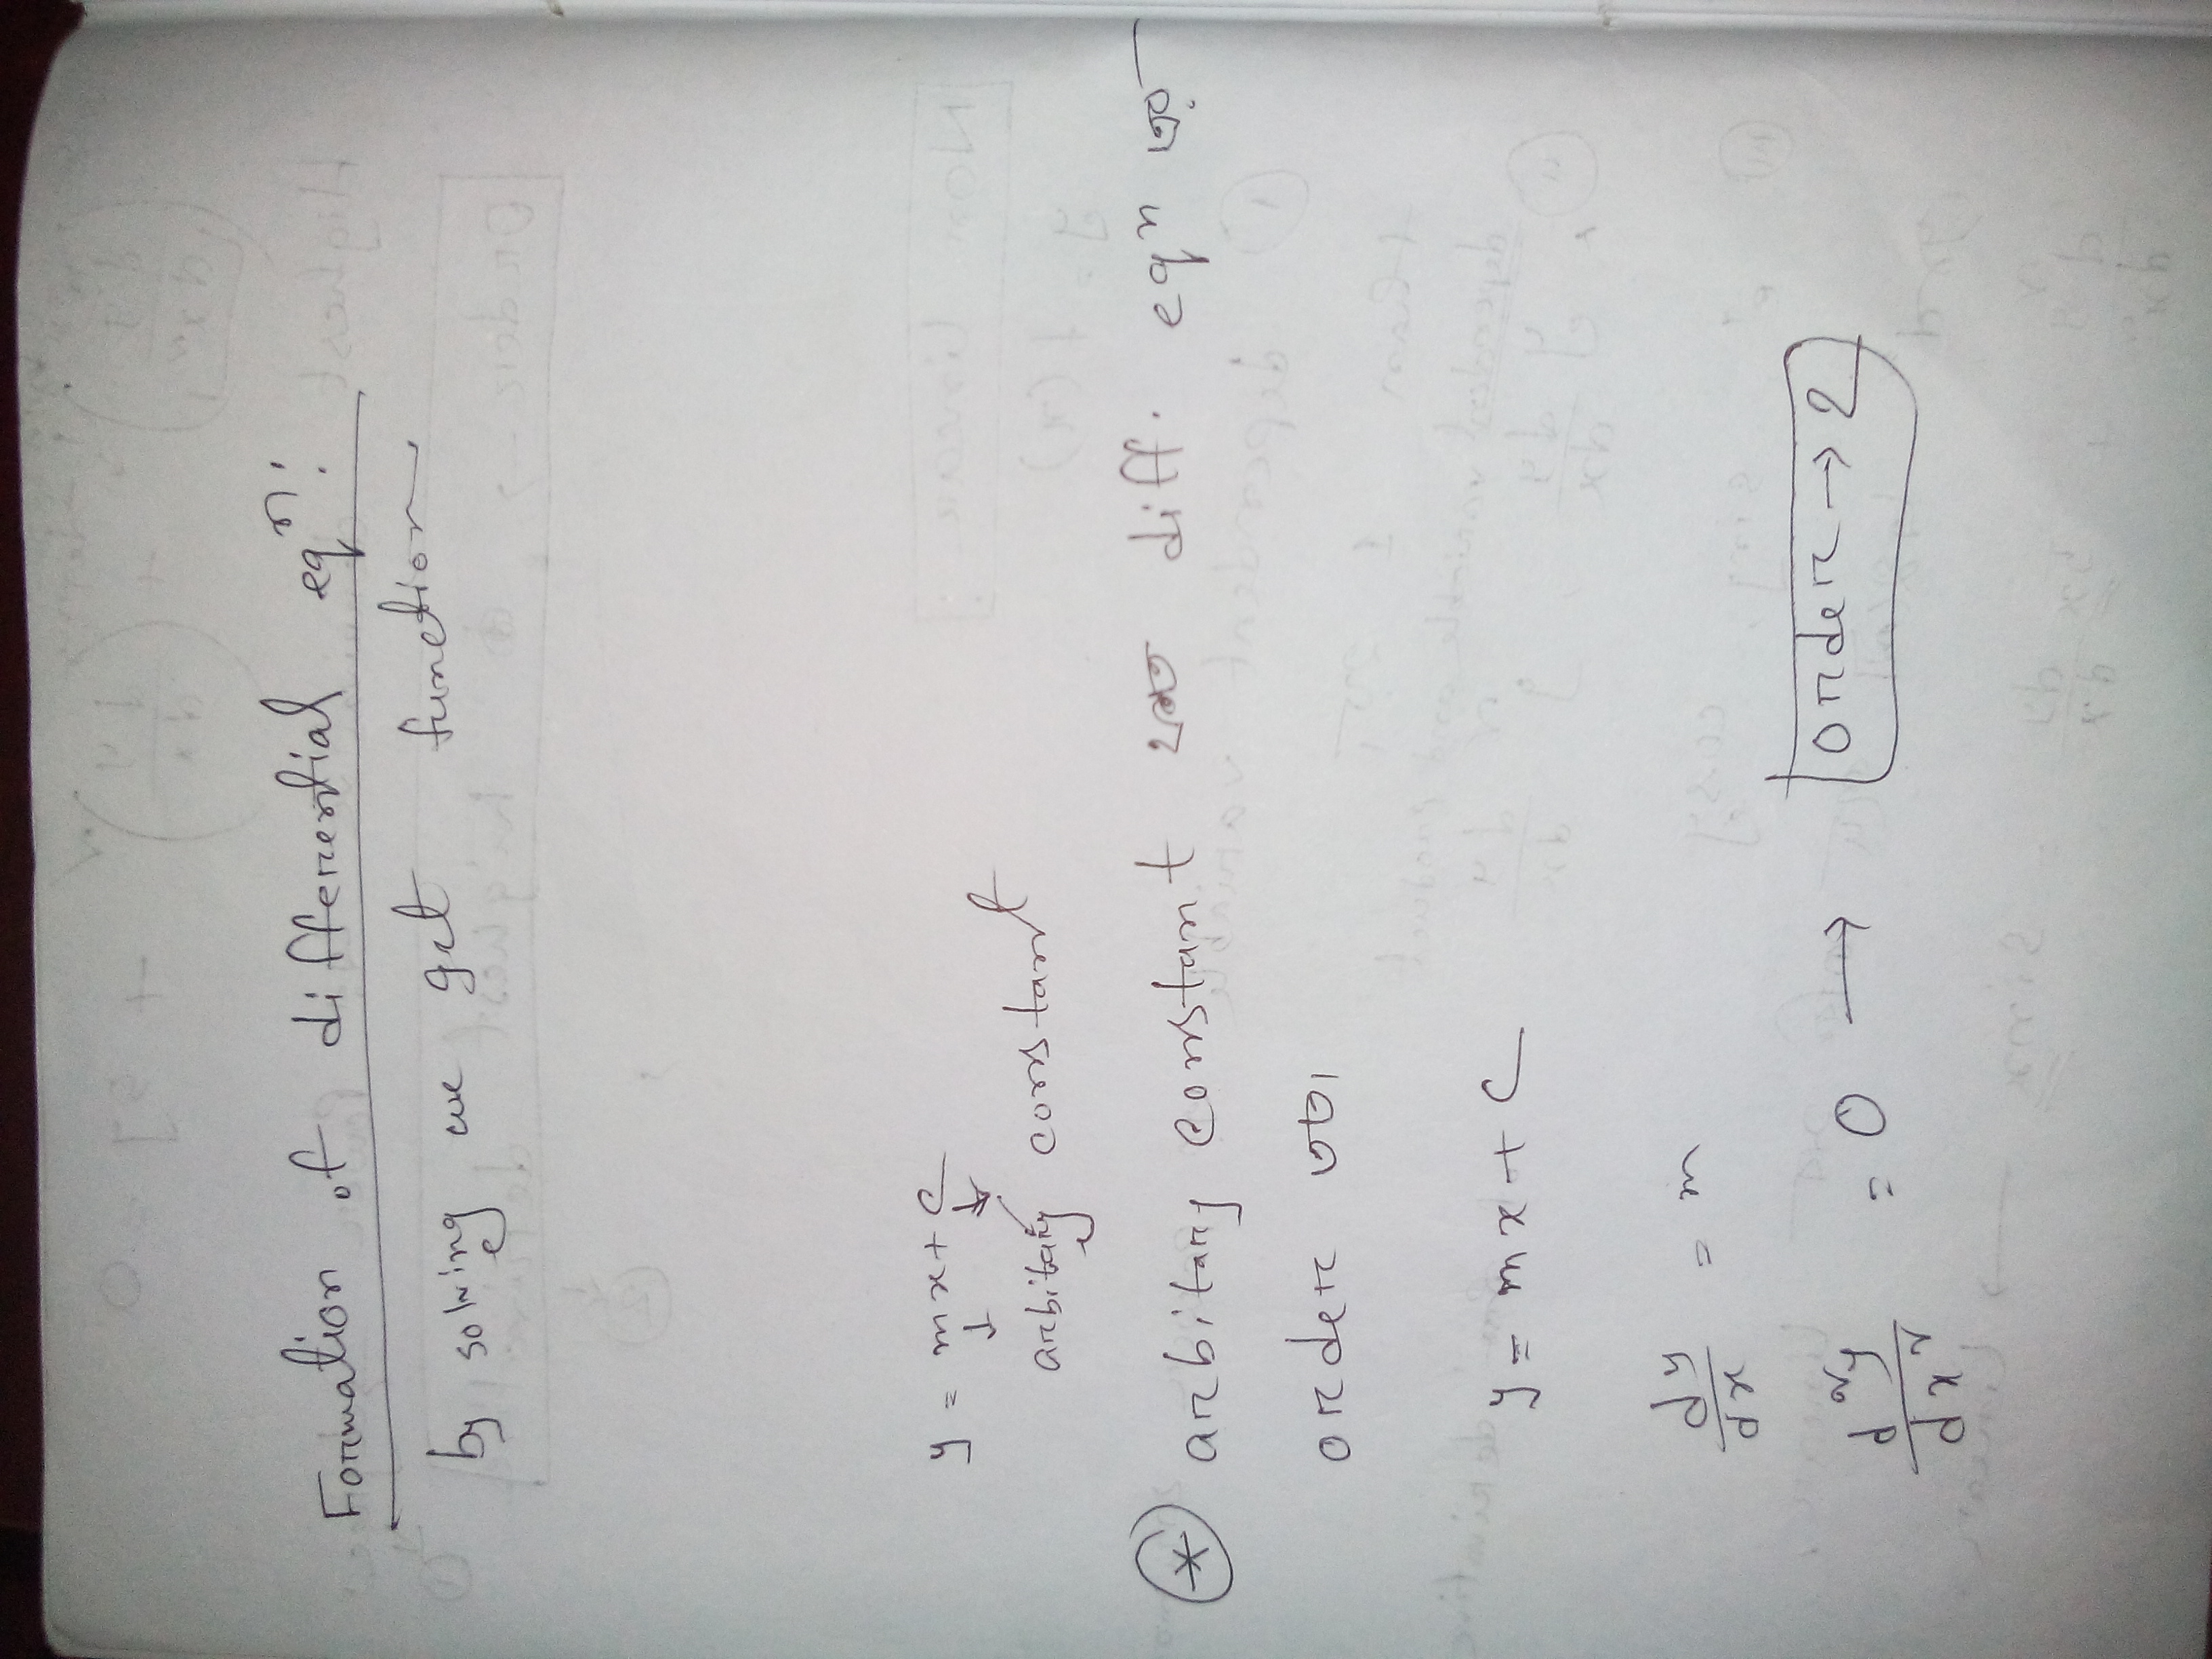 Formation of differential eqⁿ:
by solving we get function
y = mx + c
arbitary constant
* arbitary constant যত diff. eqn এর
order তত
y = mx + c
dy/dx = m
d²y/dx² = 0 → order → 2